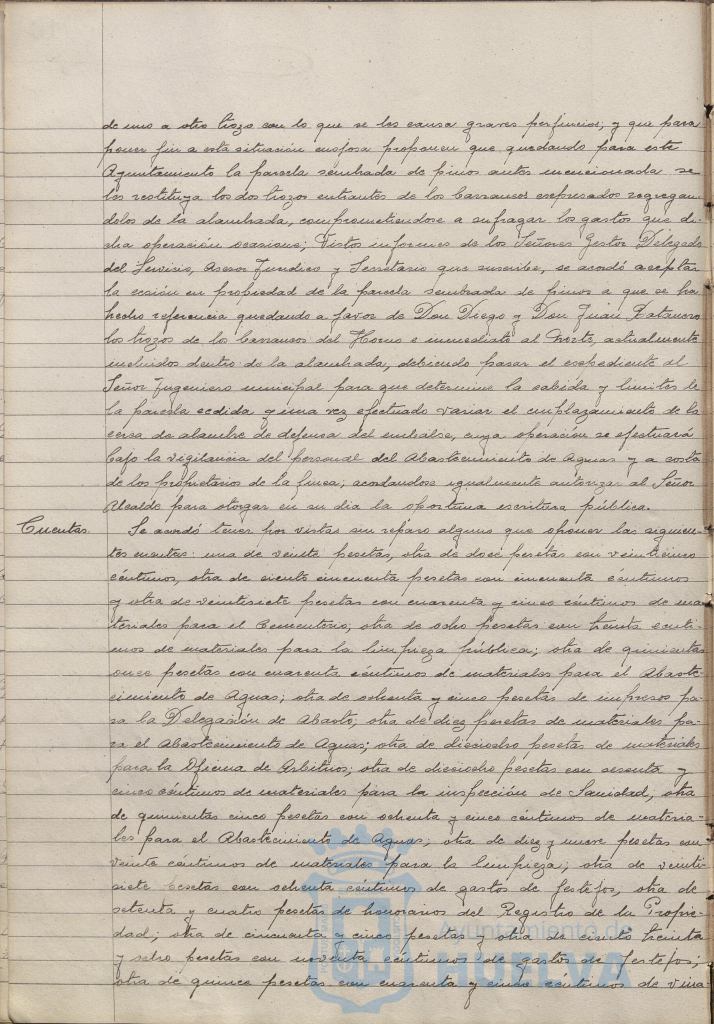 de uno a otro trozo con lo que se les causa graves perjuicios; y que para
poner fin a esta situación enojosa proponen que quedando para este
Ayuntamiento la parcela sembrada de pinos antes mencionada se
les restituya los dos trozos entrantes de los barrancos expresados segregan-
dolos de la alambrada, comprometiendose a sufragar los gastos que di-
cha operación ocasione; Vistos informes de los Señores Gestor Delegado
del Servicio, Asesor Juridico y Secretario que suscribe, se acordó aceptar
la cesión en propiedad de la parcela sembrada de pinos a que se ha
hecho referencia quedando a favor de Don Diego y Don Juan
los trozos de los barrancos del Horno e inmediato al Norte, actualmente
incluidos dentro de la alambrada, debiendo pasar el expediente al
Señor Ingeniero municipal para que determine la cabida y limites de
la parcela cedida y una vez efectuado variar el emplazamiento de la
cerca de alambre de defensa del embalse, cuya operación se efectuará
bajo la vigilancia del personal del Abastecimiento de Aguas y a costa
de los propietarios de la finca; acordandose igualmente autorizar al Señor
Alcalde para otorgar en su dia la oportuna escritura pública.
Cuentas. Se acordó tener por vistas sin reparo alguno que oponer las siguien-
tes cuentas: una de veinte pesetas, otra de doce pesetas con veinticinco
céntimos, otra de ciento cincuenta pesetas con cincuenta céntimos
y otra de veintisiete pesetas con cuarenta y cinco céntimos de ma-
teriales para el Cementerio; otra de ocho pesetas con treinta centi-
mos de materiales para la limpieza pública; otra de quinientas
once pesetas con cuarenta céntimos de materiales para el Abaste-
cimiento de Aguas; otra de ochenta y cinco pesetas de impresos pa-
ra la Delegación de Abasto; otra de diez pesetas de materiales pa-
ra el Abastecimiento de Aguas; otra de dieciocho pesetas de materiales
para la Oficina de Arbitrios; otra de dieciocho pesetas con sesenta y
cinco céntimos de materiales para la inspección de Sanidad, otra
de quinientas cinco pesetas con ochenta y cinco céntimos de materia-
les para el Abastecimiento de Aguas; otra de diez y nueve pesetas con
veinte céntimos de materiales para la limpieza; otra de veinti-
siete pesetas con ochenta céntimos de gastos de festejos, otra de
setenta y cuatro pesetas de honorarios del Registro de la Propie-
dad; otra de cincuenta y cinco pesetas y otra de ciento treinta
y ocho pesetas con noventa céntimos de gastos de festejos;
otra de quince pesetas con cuarenta y cinco céntimos de vina-
Ayuntamiento de
HUELVA